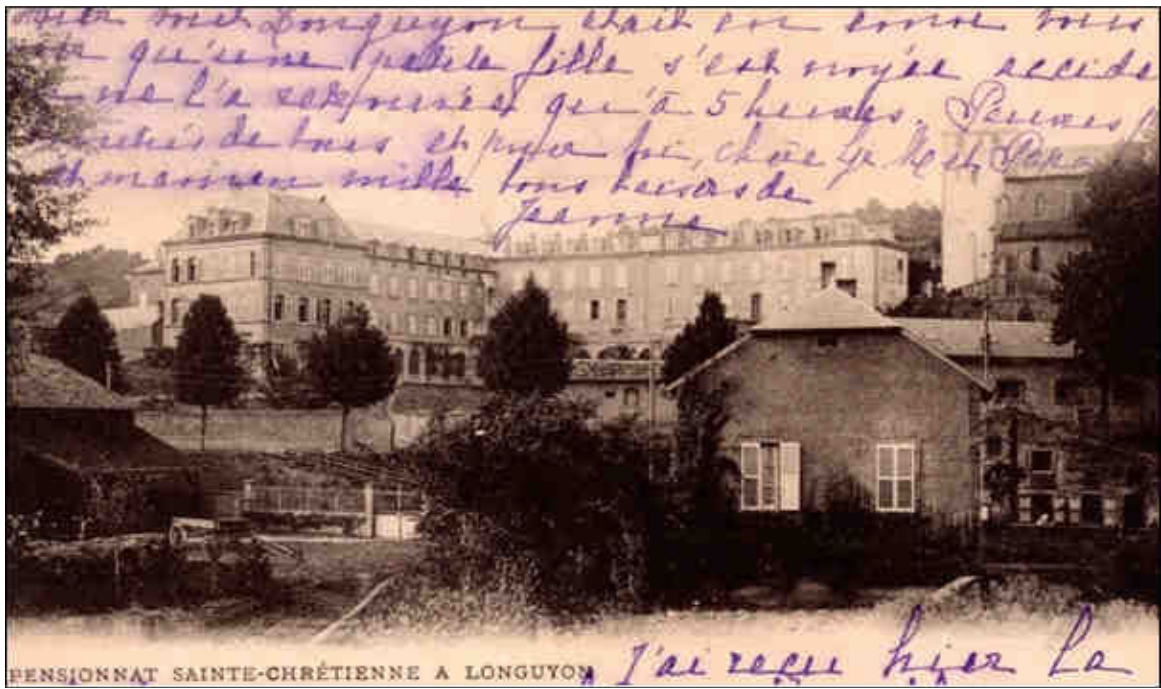 tout Longuyon était en émoi vous
qu'une petite fille s'est noyée accide
ne l'a retrouvée qu'à 5 heures. Pauvres
de tous et pour toi, chère
et maman mille bons baisers de
Jeanne
PENSIONNAT SAINTE-CHRÉTIENNE A LONGUYON
J'ai reçu hier la